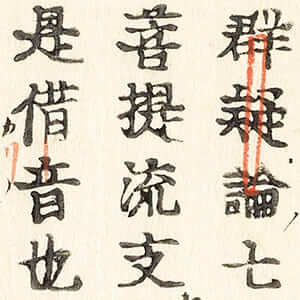 群疑論七
菩提流支
是借音也